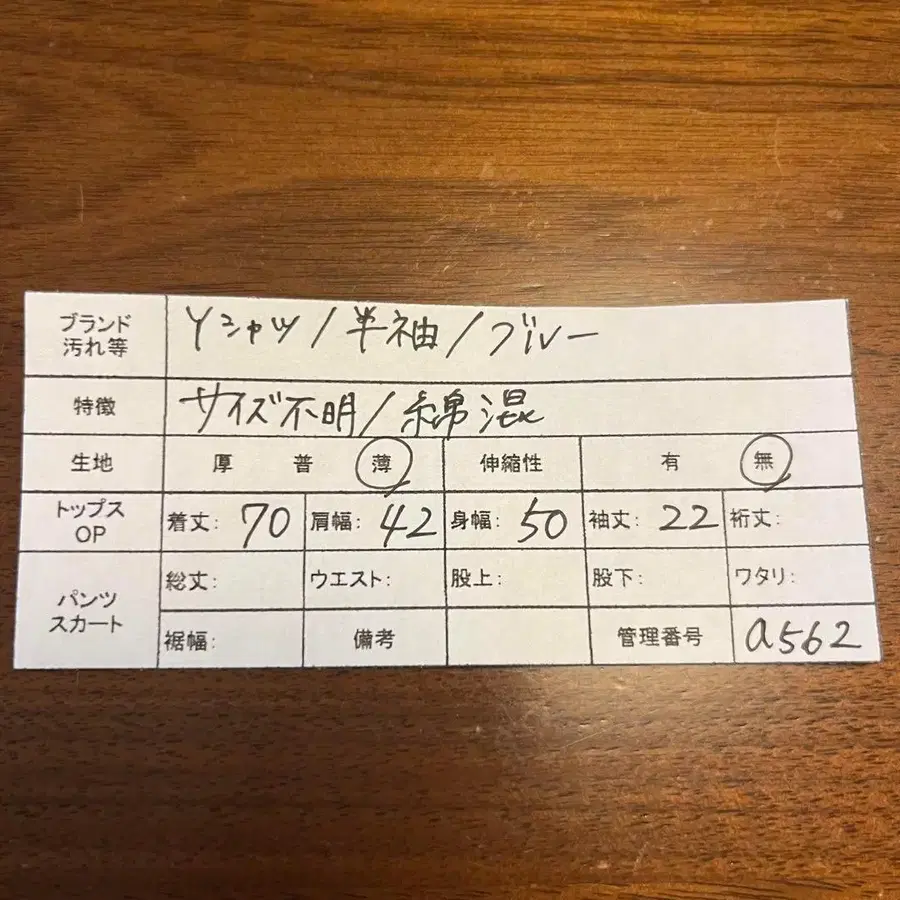 ブランド
汚れ等
Yシャツ/半袖/ブルー
特徴
サイズ不明/綿混
生地 厚 普 薄 伸縮性 有 無
トップス
OP
着丈: 70 肩幅: 42 身幅: 50 袖丈: 22 裄丈:
パンツ
スカート
総丈: ウエスト: 股上: 股下: ワタリ:
裾幅: 備考 管理番号 a562